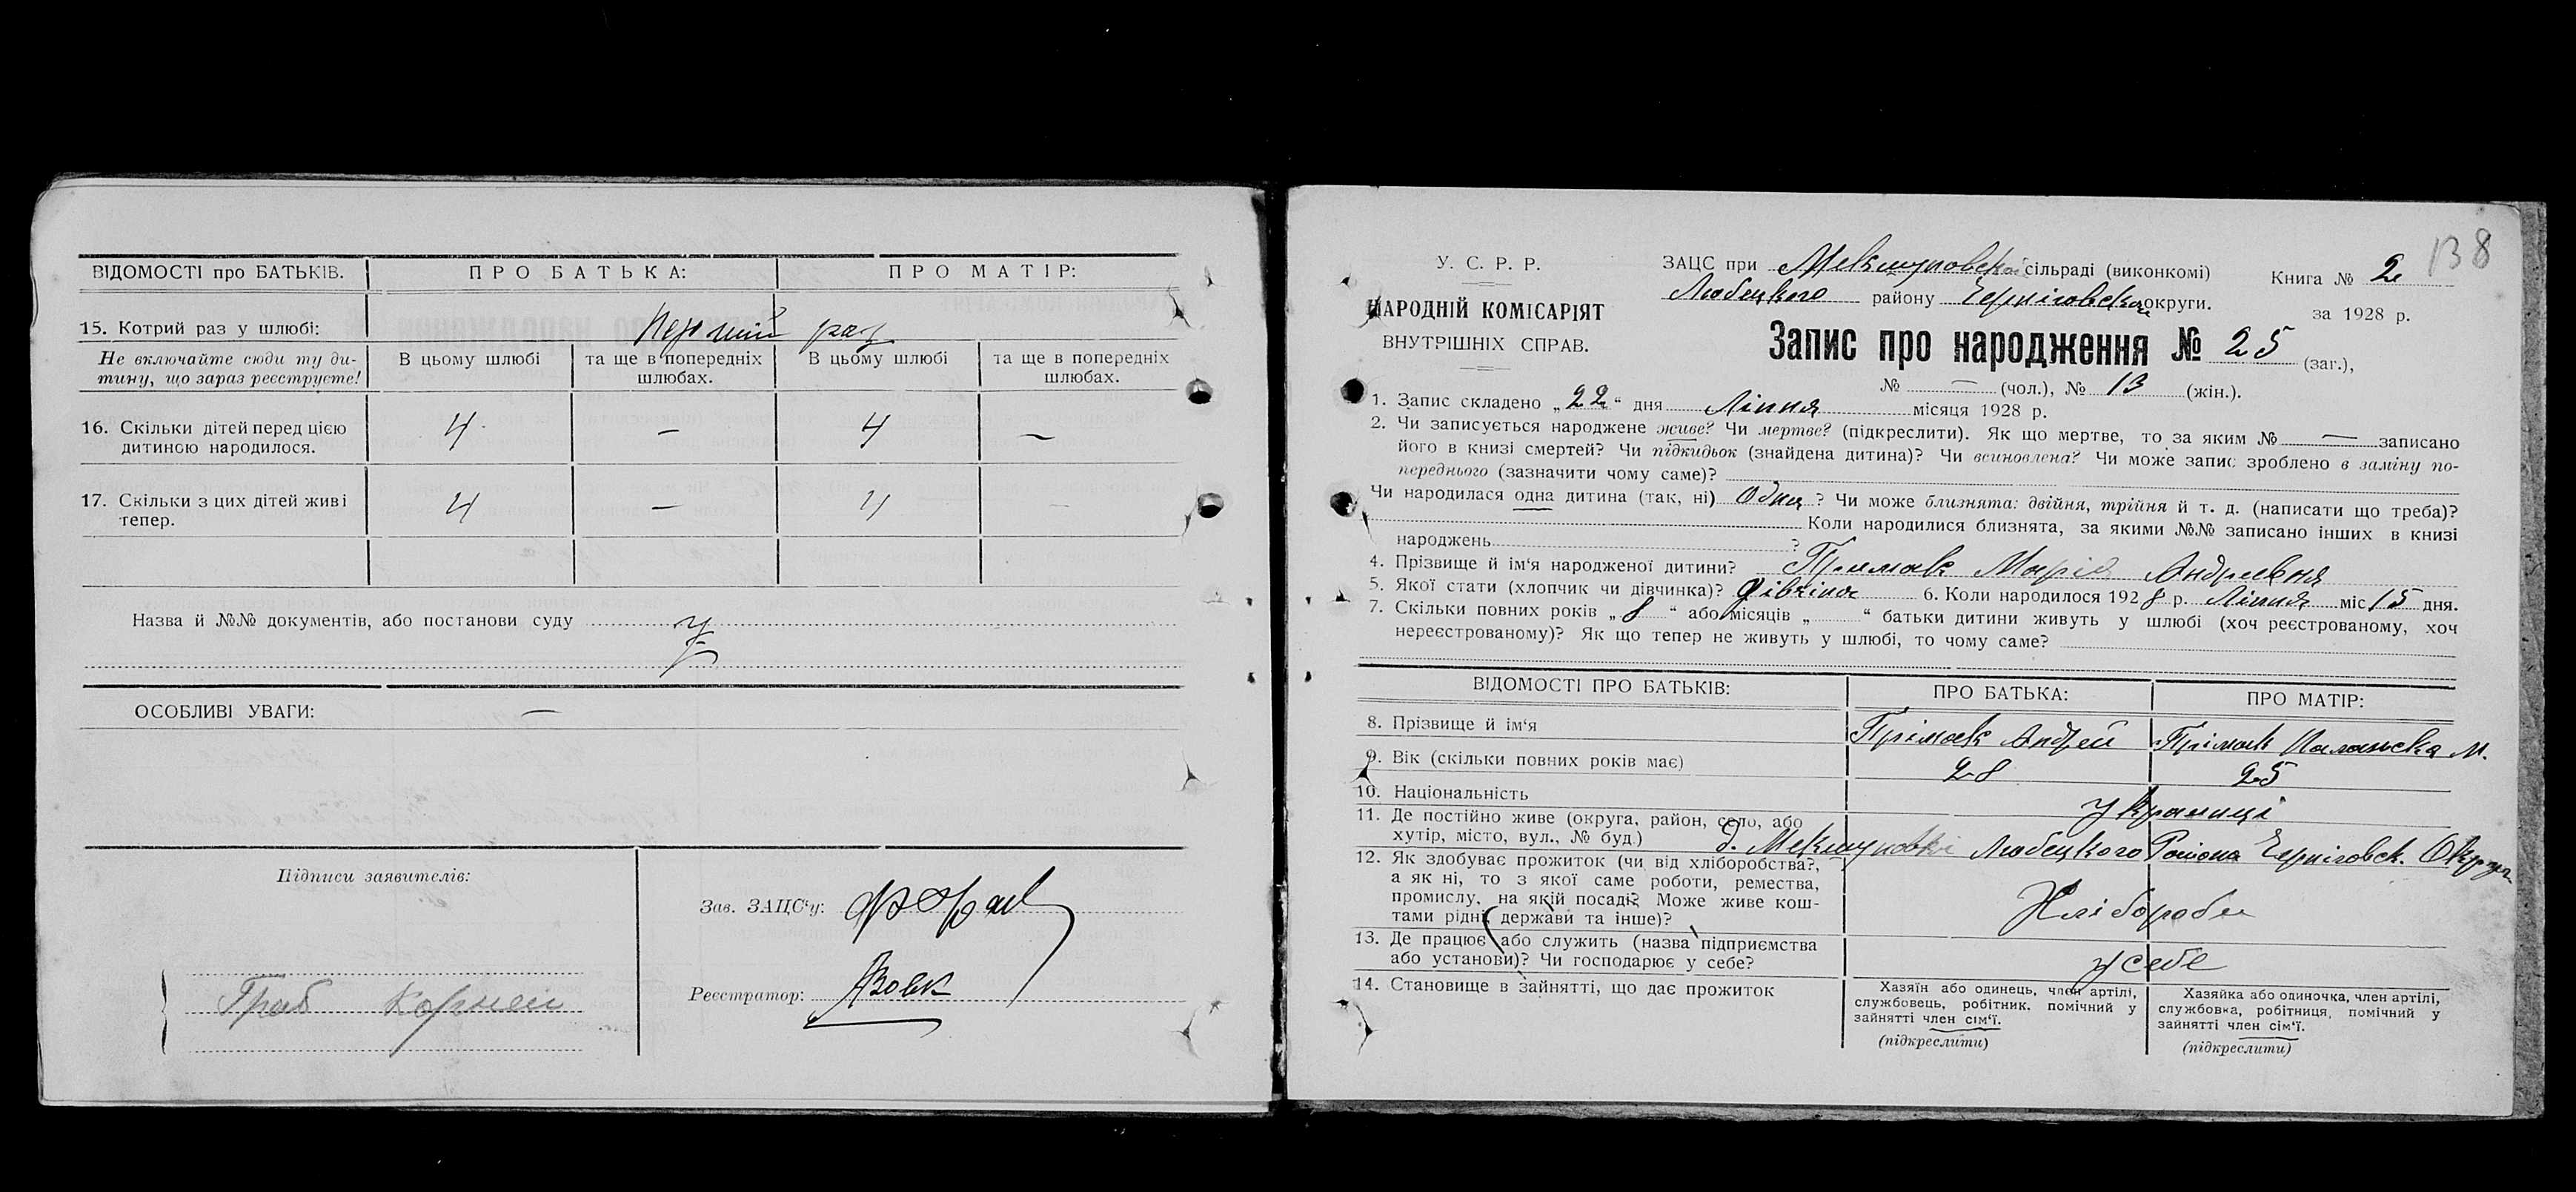 ВІДОМОСТІ про БАТЬКІВ. ПРО БАТЬКА: ПРО МАТІР:
15. Котрий раз у шлюбі: Перший раз
Не включайте сюди ту ди- В цьому шлюбі та ще в попередніх В цьому шлюбі та ще в попередніх
тину, що зараз реєструєте! шлюбах. шлюбах.
16. Скільки дітей перед цією 4 — 4 —
дитиною народилося.
17. Скільки з цих дітей живі 4 — 4 —
тепер.
Назва й №№ документів, або постанови суду
ОСОБЛИВІ УВАГИ: —
Підписи заявителів:
Зав. ЗАЦС‘у:
Граб Корней
Реєстратор: Вовк
138
У. С. Р. Р. ЗАЦС при Мекшуновской сільраді (виконкомі) Книга № 2
Любецкого району Черніговской округи.
НАРОДНІЙ КОМІСАРІЯТ за 1928 р.
ВНУТРІШНІХ СПРАВ. Запис про народження № 25 (заг.),
№ — (чол.), № 13 (жін.).
1. Запис складено „22“ дня Ліпня місяця 1928 р.
2. Чи записується народжене живе? Чи мертве? (підкреслити). Як що мертве, то за яким № — записано
його в книзі смертей? Чи підкидьок (знайдена дитина)? Чи всиновлена? Чи може запис зроблено в заміну по-
переднього (зазначити чому саме)?
Чи народилася одна дитина (так, ні) Одна? Чи може близнята: двійня, трійня й т. д. (написати що треба)?
Коли народилися близнята, за якими №№ записано інших в книзі
народжень ?
4. Прізвище й ім‘я народженої дитини? Примак Марія Андриевня
5. Якої стати (хлопчик чи дівчинка)? дівчіна 6. Коли народилося 1928 р. Ліпня міс 15 дня.
7. Скільки повних років „8“ або місяців „ “ батьки дитини живуть у шлюбі (хоч реєстрованому, хоч
нереєстрованому)? Як що тепер не живуть у шлюбі, то чому саме?
ВІДОМОСТІ ПРО БАТЬКІВ: ПРО БАТЬКА: ПРО МАТІР:
8. Прізвище й ім‘я Прімак Андрей Прімак Палажка М.
9. Вік (скільки повних років має) 28 25
10. Національність Украинці
11. Де постійно живе (округа, район, село, або
хутір, місто, вул., № буд.) д. Мекшуновки Любецкого Района Черніговск. Округи
12. Як здобуває прожиток (чи від хліборобства?,
а як ні, то з якої саме роботи, ремества,
промислу, на якій посаді? Може живе кош- Хлібороби
тами рідні, держави та інше)?
13. Де працює або служить (назва підприємства
або установи)? Чи господарює у себе? У себе
14. Становище в зайнятті, що дає прожиток Хазяїн або одинець, член артілі, Хазяйка або одиночка, член артілі,
службовець, робітник, помічний у службовка, робітниця, помічний у
зайнятті член сім‘ї. зайнятті член сім‘ї.
(підкреслити) (підкреслити)